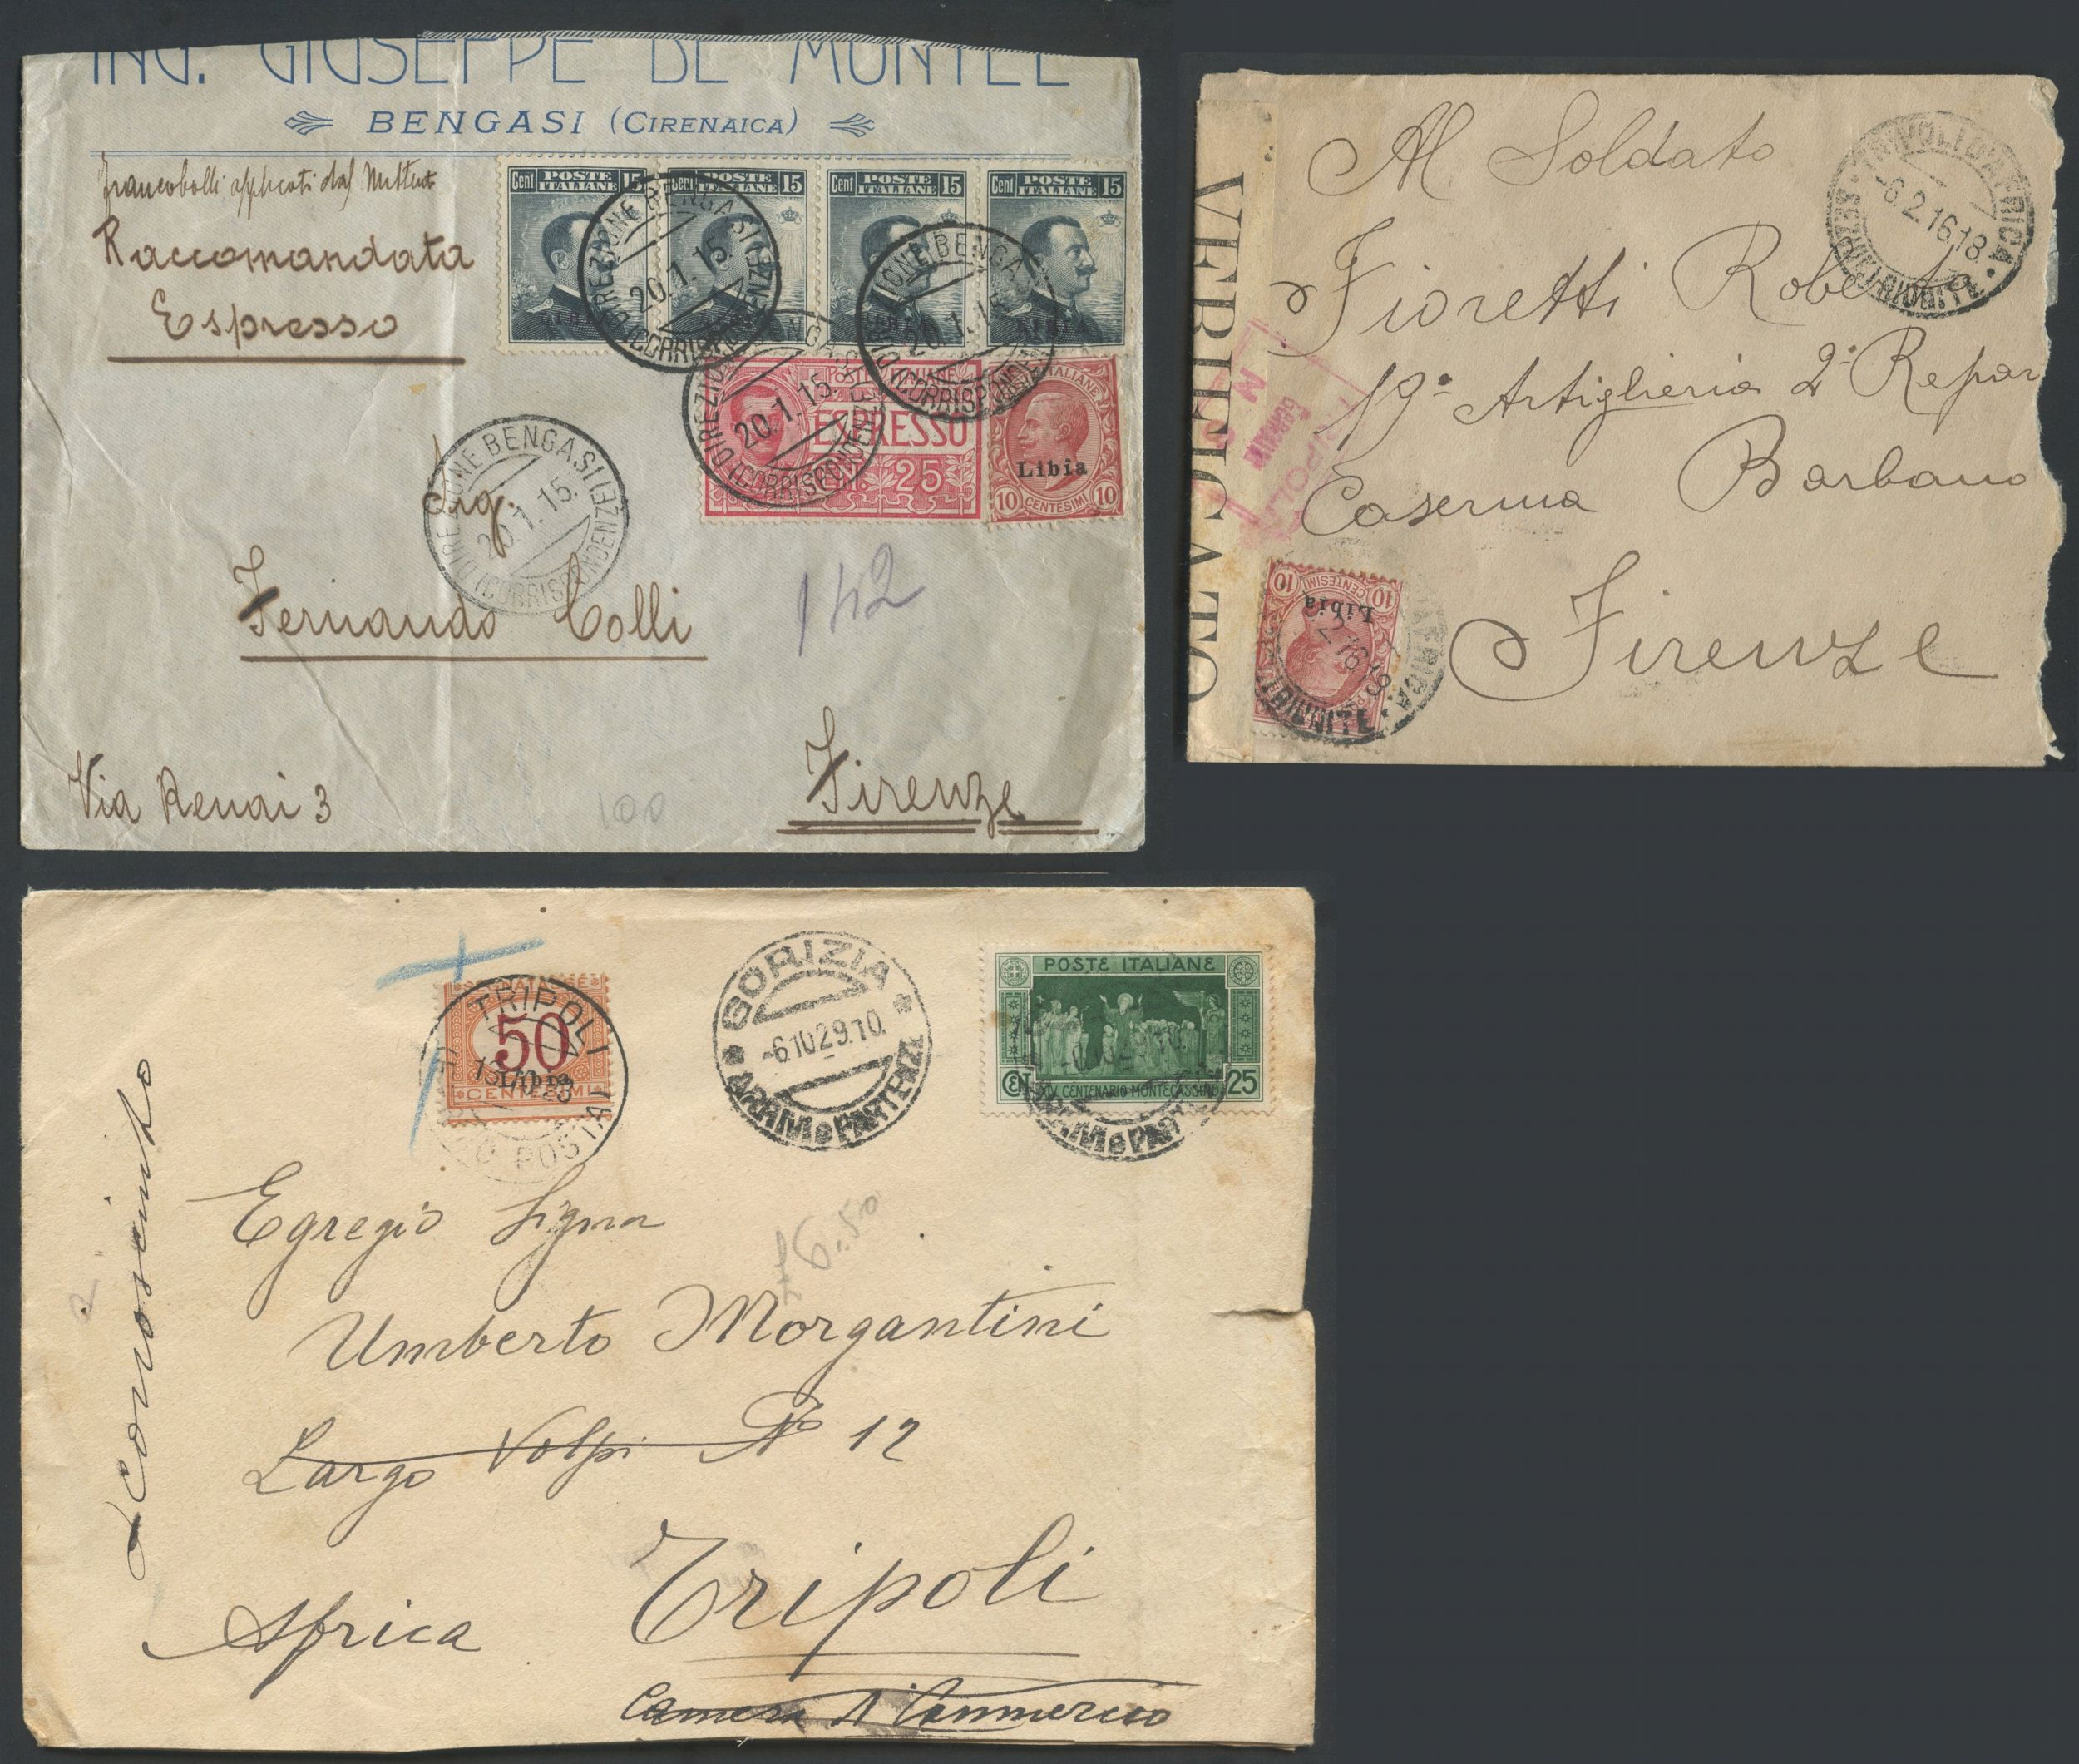 ING. GIUSEPPE DE MONTEL
BENGASI (CIRENAICA)
Francobolli applicati dal Mittente
Raccomandata
Espresso
Cent POSTE ITALIANE 15
Cent POSTE ITALIANE 15
Cent POSTE ITALIANE 15
Cent POSTE ITALIANE 15
LIBIA
DIREZIONE BENGASI (CORRISPONDENZE)
20.1.15.
DIREZIONE BENGASI (CORRISPONDENZE)
20.1.15
DIREZIONE BENGASI (CORRISPONDENZE)
20.1.15.
ESPRESSO
25
Libia
10 CENTESIMI 10
DIREZIONE BENGASI (CORRISPONDENZE)
20.1.15.
Fernando Colli
142
Via Renai 3
100
Firenze
VERIFICATO
Al Soldato
TRIPOLI D'AFRICA
-6.2.16.18
SEZIONI RIUNITE
Fioretti Roberto
19ª Artiglieria 2º Repar
Caserma Barbano
Firenze
10 CENTESIMI 10
Libia
RIUNITE
SEGNATASSE
50
Libia
CENTESIMI
TRIPOLI
GORIZIA
-6.10.29.10.
ARRIVI e PARTENZE
POSTE ITALIANE
CENT XIV CENTENARIO MONTECASSINO 25
ARRIVI e PARTENZE
Sconosciuto
Egregio Signor
6.50
Umberto Morgantini
Largo Volpi Nº 12
Tripoli
Africa
Camera di Commercio